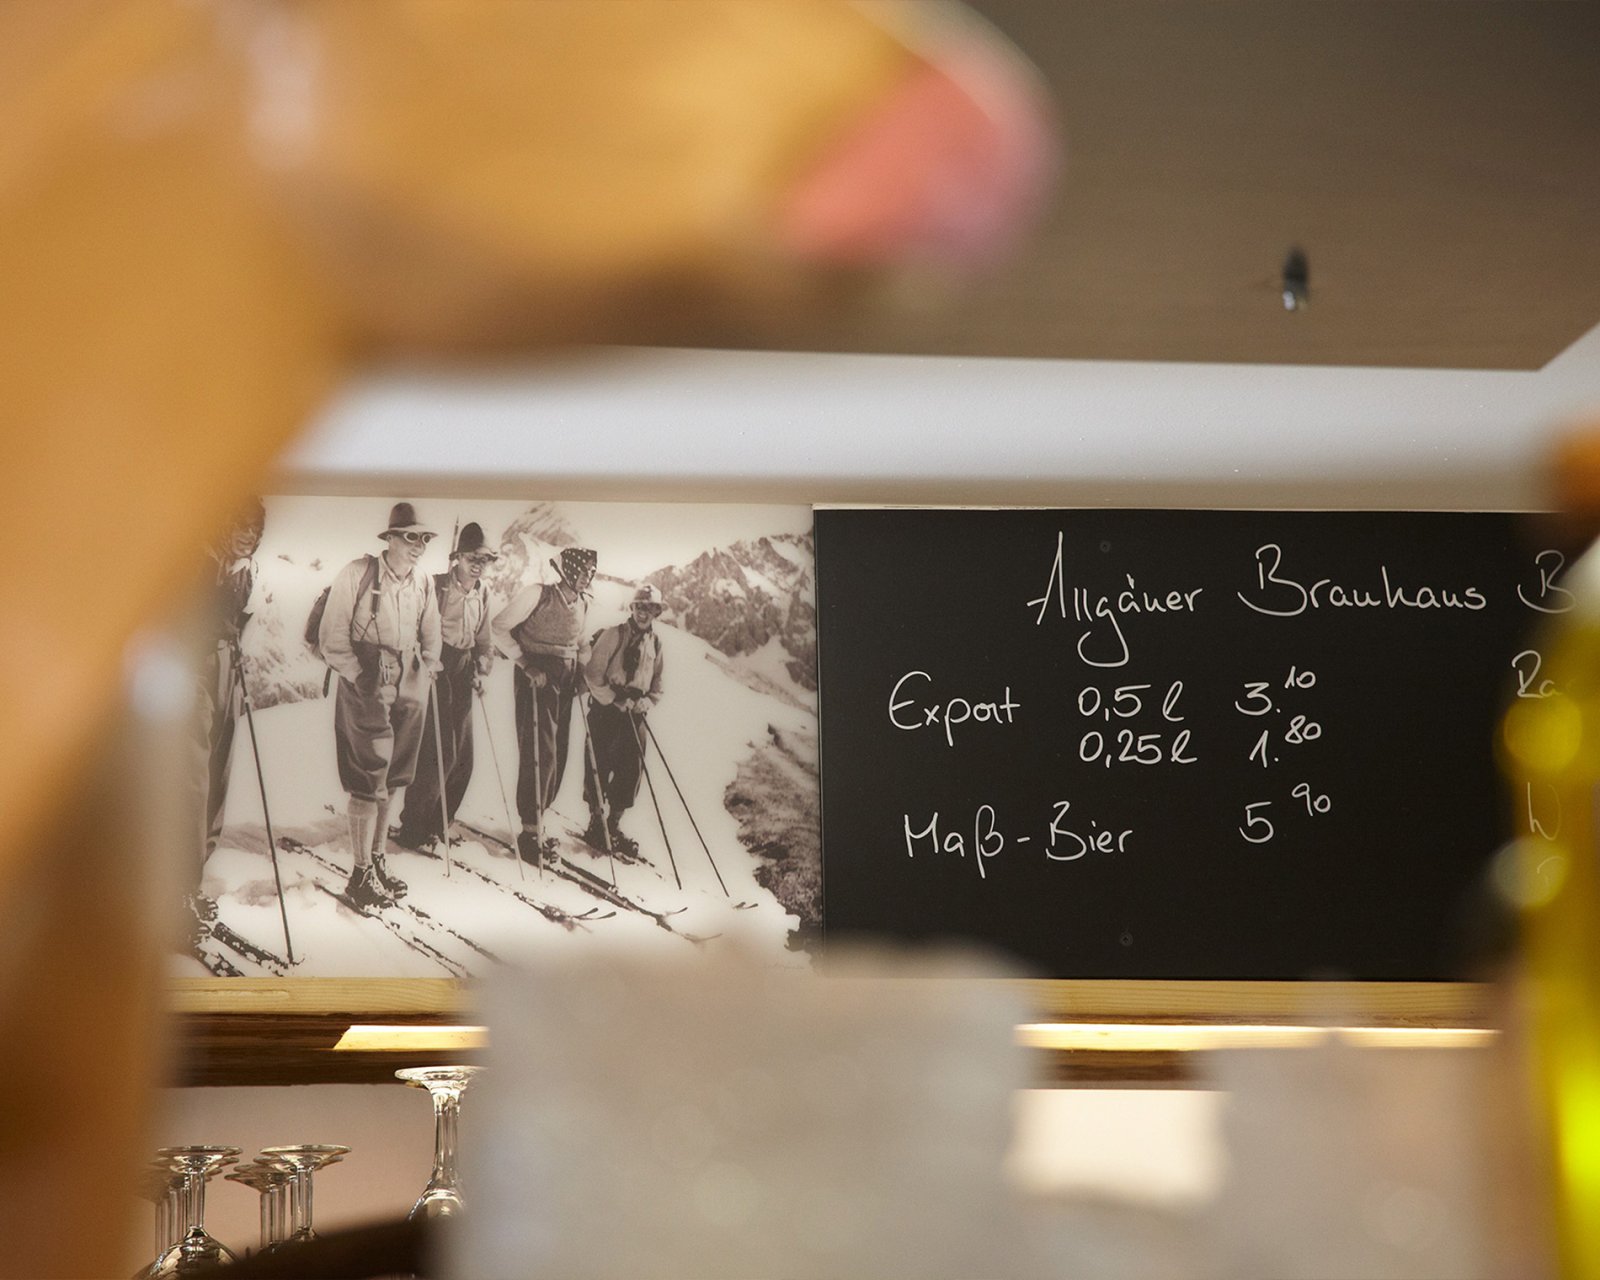 Allgäuer Brauhaus
Export 0,5 l 3.10
0,25 l 1.80
Maß-Bier 5 90